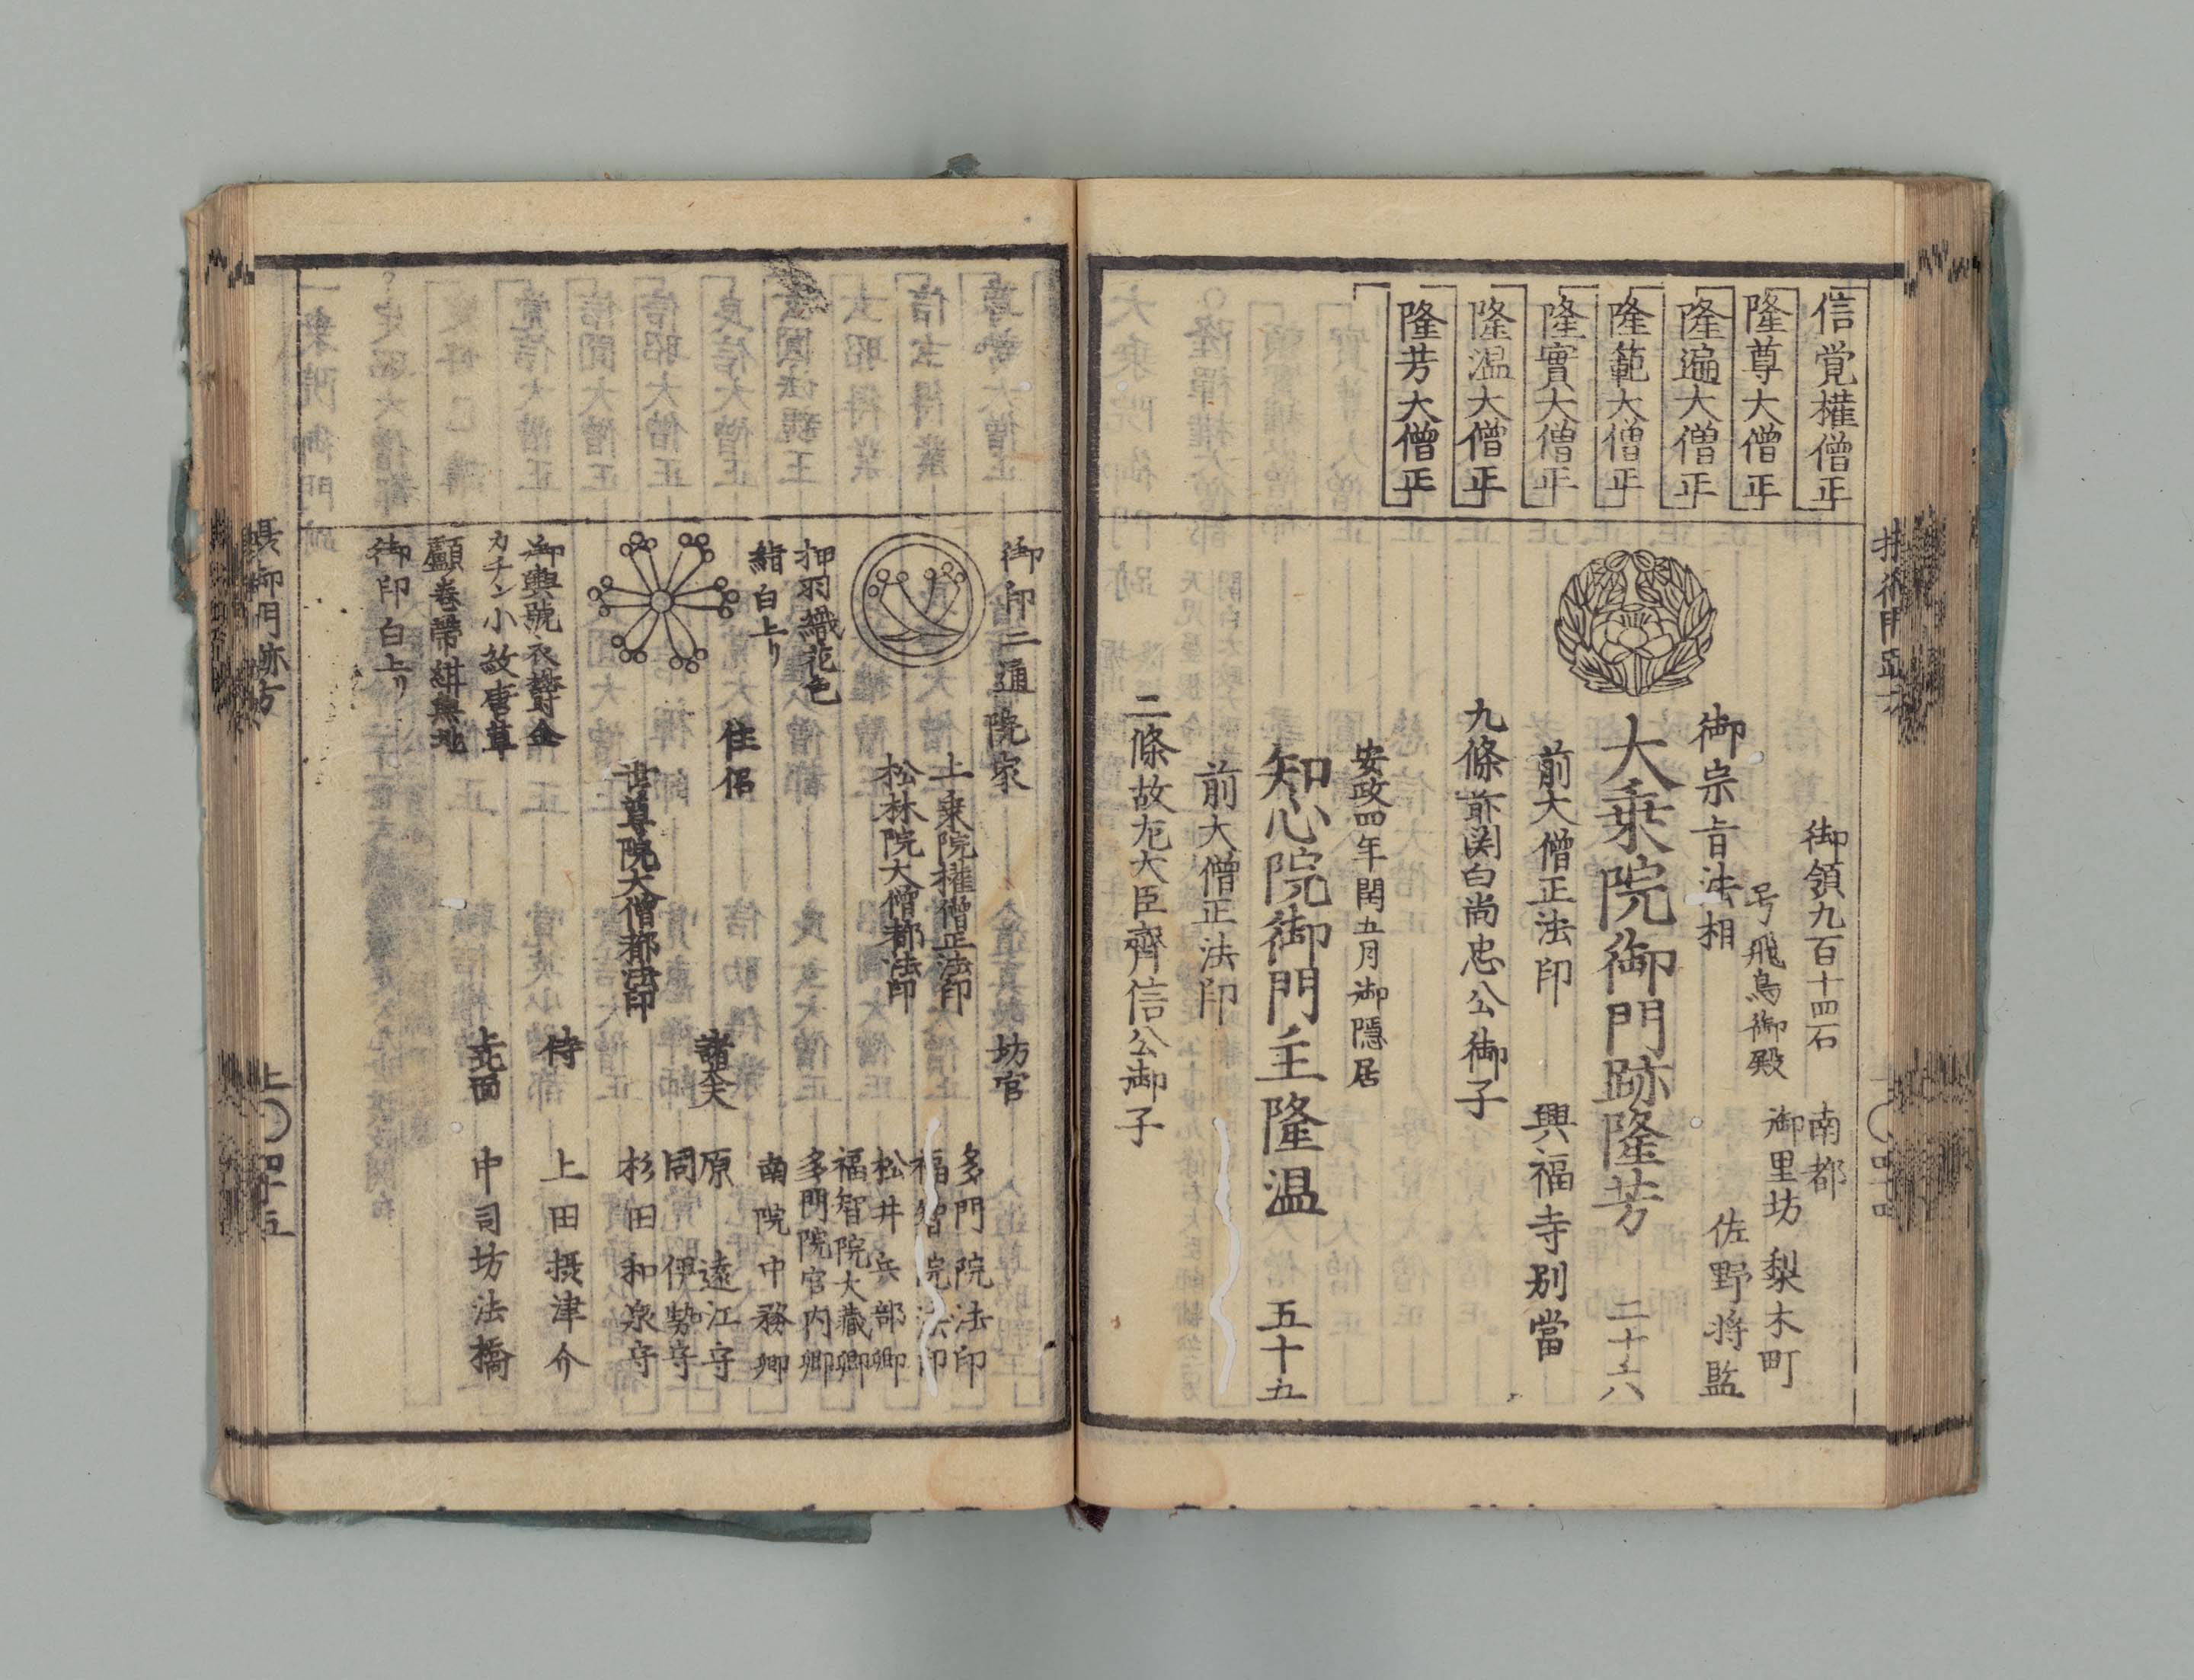 信覚權僧正
隆尊大僧正
隆遍大僧正
隆範大僧正
隆實大僧正
隆温大僧正
隆芳大僧正
御領九百十四石
南都
号飛鳥御殿
御里坊
梨木町
佐野将監
御宗旨法相
大乗院御門跡隆芳
二十六
前大僧正法印
興福寺別當
九條前関白尚忠公御子
安政四年閏五月御隠居
知心院御門主隆温
五十五
前大僧正法印
二條故左大臣齊信公御子
御印二通
院家
上乗院權僧正法印
松林院大僧都法印
坊官
多門院法印
福智院法印
松井兵部卿
福智院大藏卿
多門院宮内卿
南院中務卿
押羽織花色
紺白上り
住侶
世尊院大僧都法印
諸大夫
原遠江守
同伊勢守
杉田和泉守
侍
上田摂津介
北面
中司坊法橋
カチン小故唐草
御印白上り
摂御門跡方
上
四十五